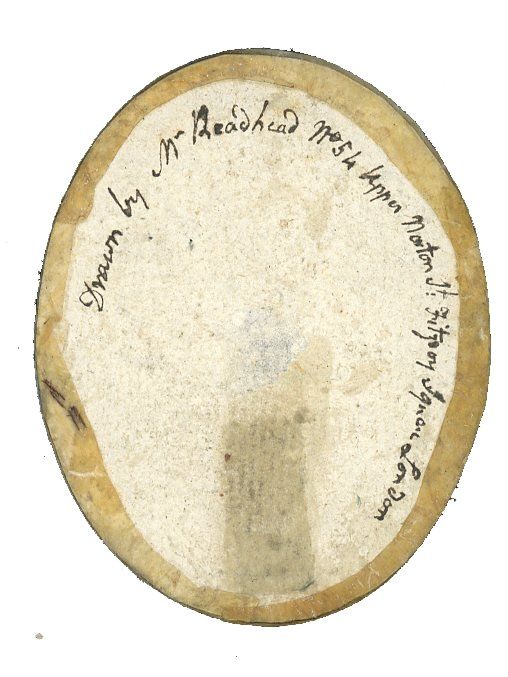 Drawn by Mr Readhead No 54 Upper Norton St. Fitzroy Square London